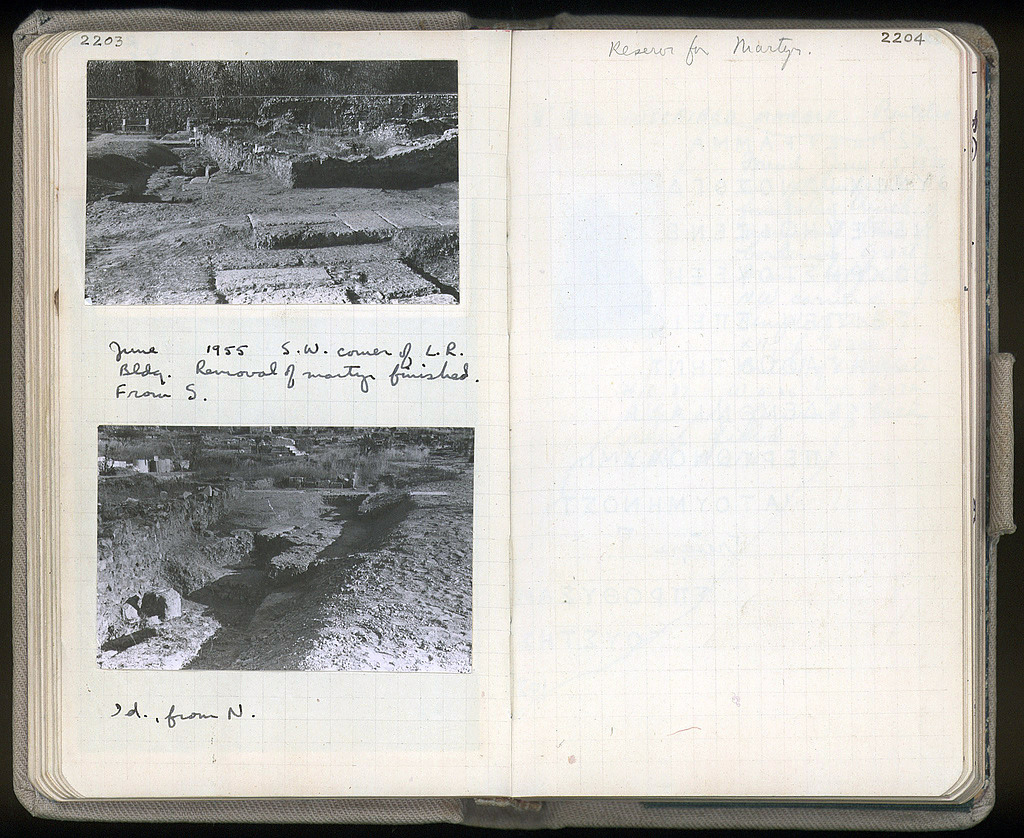 2203
June 1955 S.W. corner of L.R.
Bldg. Removal of martyr finished.
From S.
Id., from N.
2204
Reserve for Martyr.